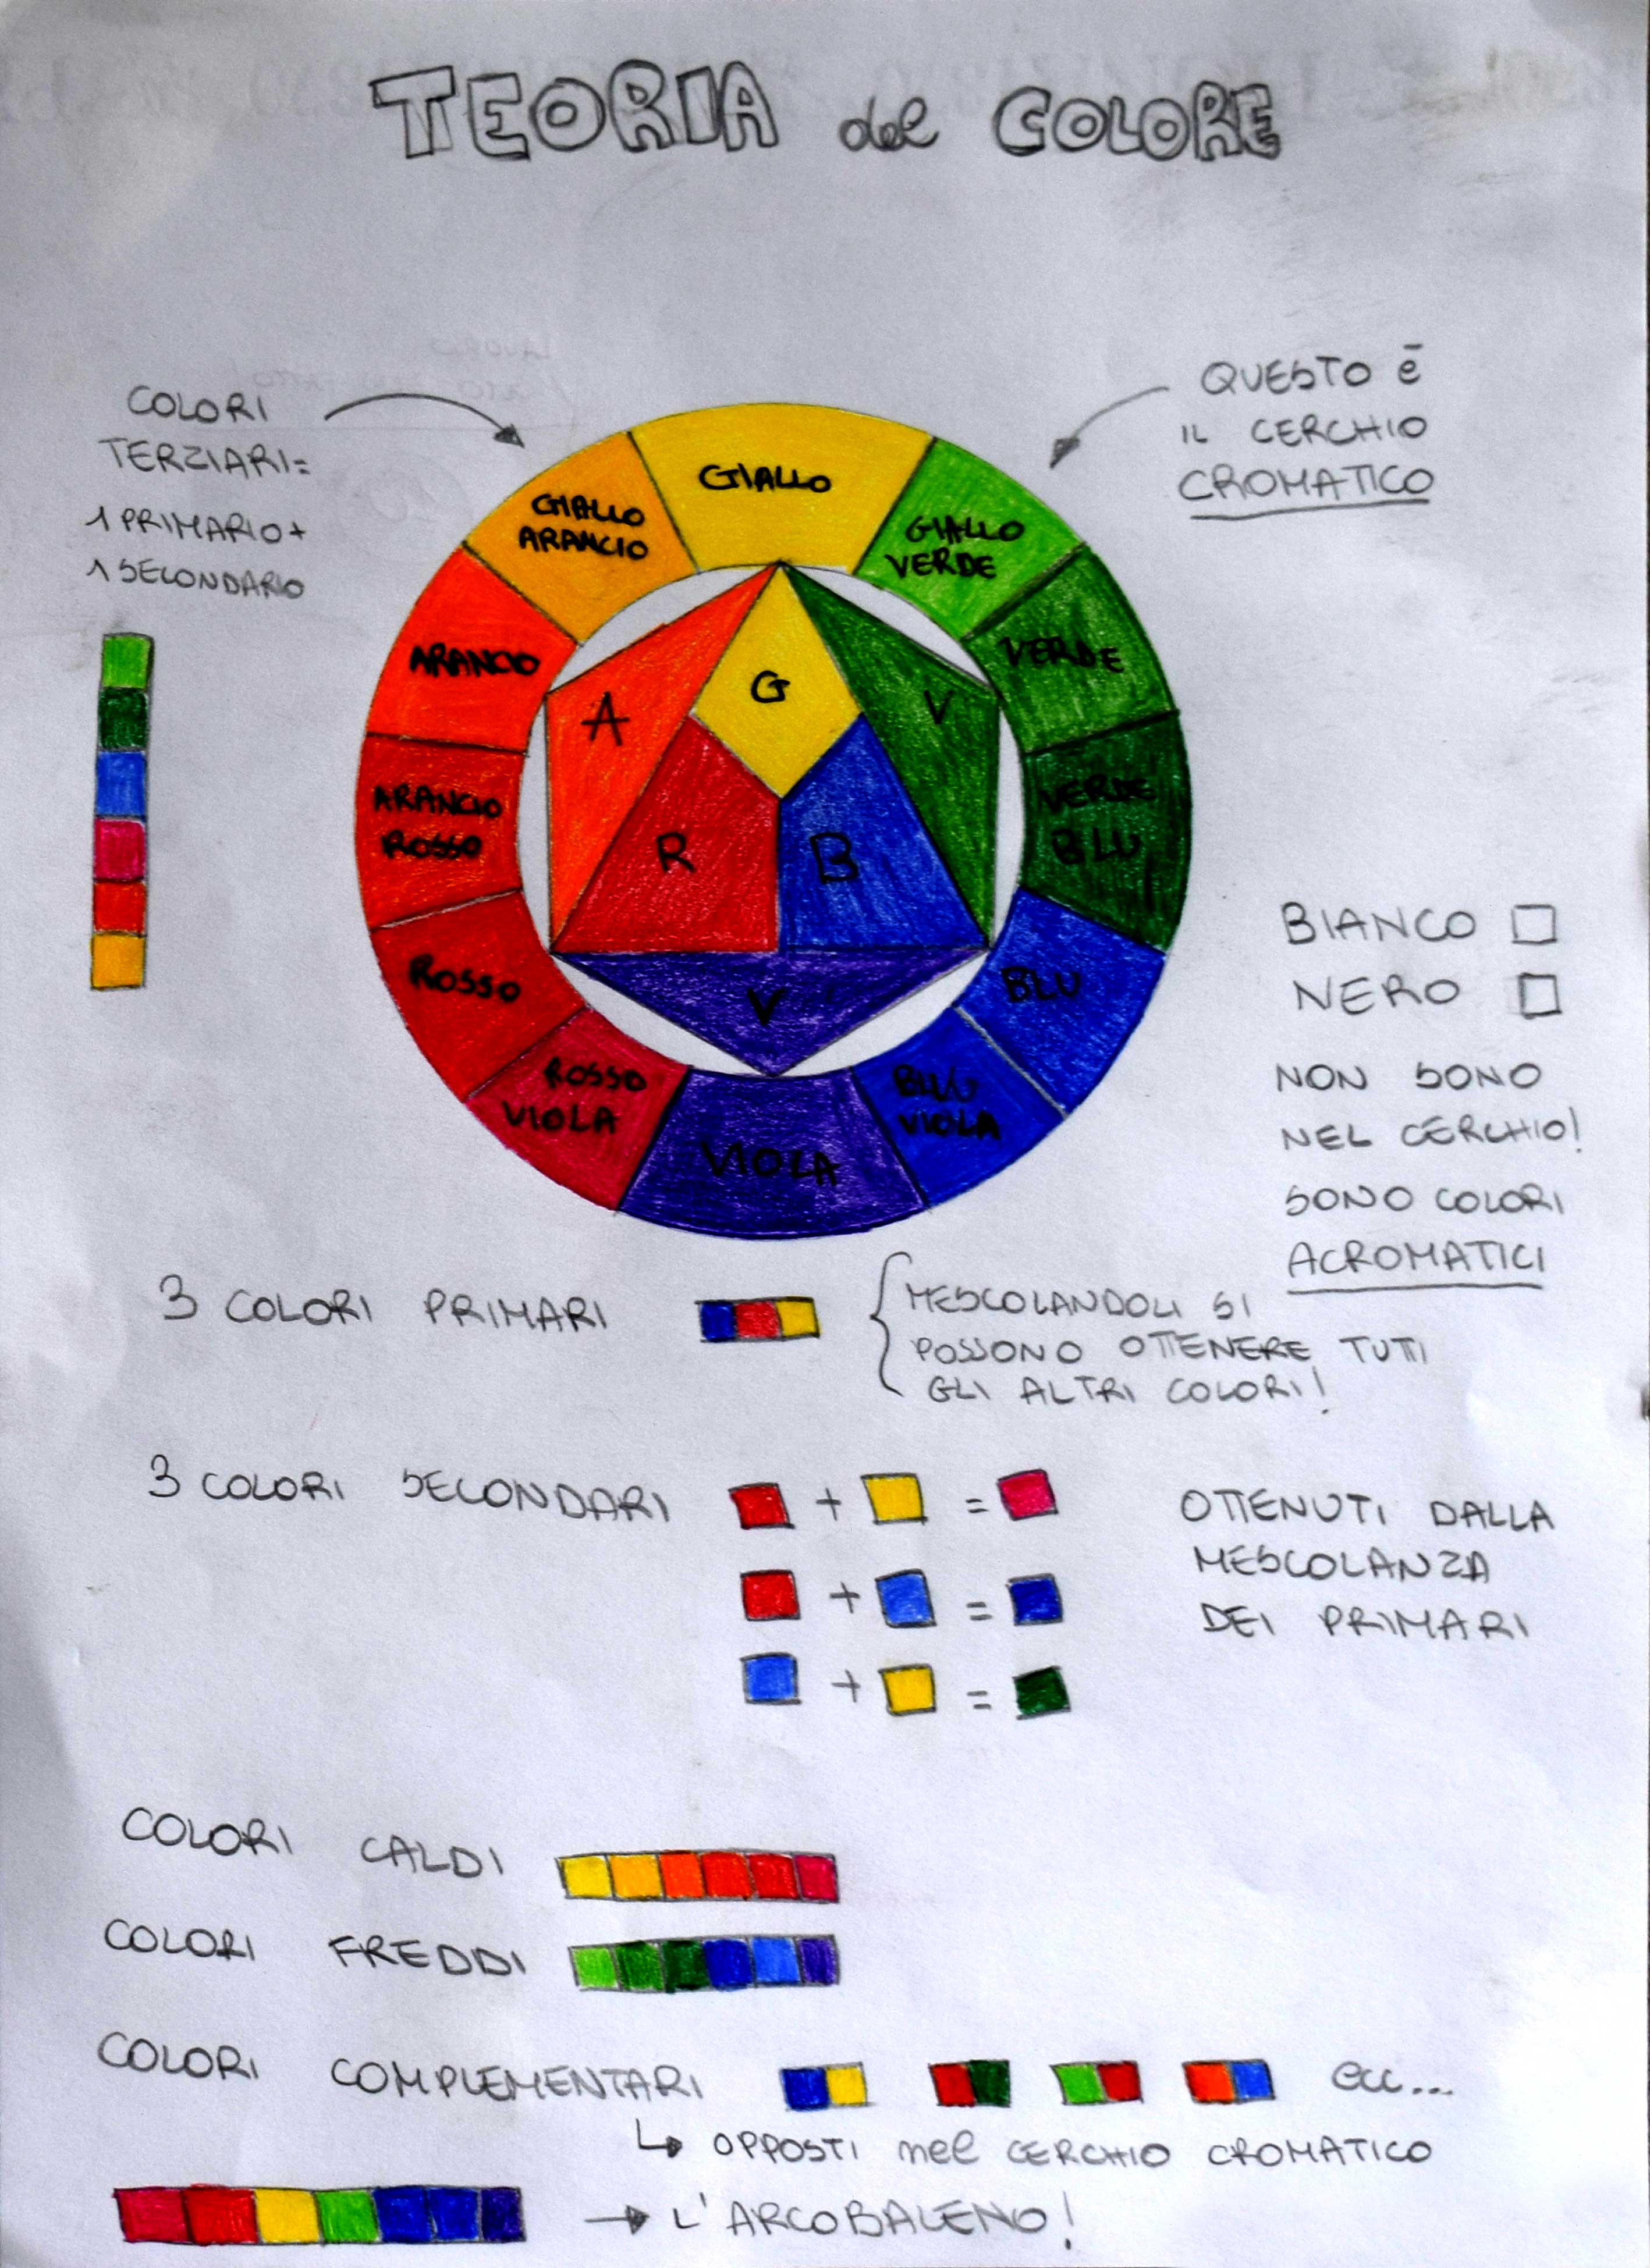 TEORIA del COLORE
COLORI
TERZIARI=
1 PRIMARIO+
1 SECONDARIO
QUESTO è
IL CERCHIO
CROMATICO
GIALLO
GIALLO
ARANCIO
GIALLO
VERDE
ARANCIO
VERDE
ARANCIO
ROSSO
VERDE
BLU
ROSSO
BLU
ROSSO
VIOLA
BLU
VIOLA
VIOLA
G
A
V
R
B
V
BIANCO
NERO
NON SONO
NEL CERCHIO!
SONO COLORI
ACROMATICI
3 COLORI PRIMARI
MESCOLANDOLI SI
POSSONO OTTENERE TUTTI
GLI ALTRI COLORI!
3 COLORI SECONDARI
+ =
+ =
+ =
OTTENUTI DALLA
MESCOLANZA
DEI PRIMARI
COLORI CALDI
COLORI FREDDI
COLORI COMPLEMENTARI ecc...
OPPOSTI nel CERCHIO CROMATICO
L'ARCOBALENO!